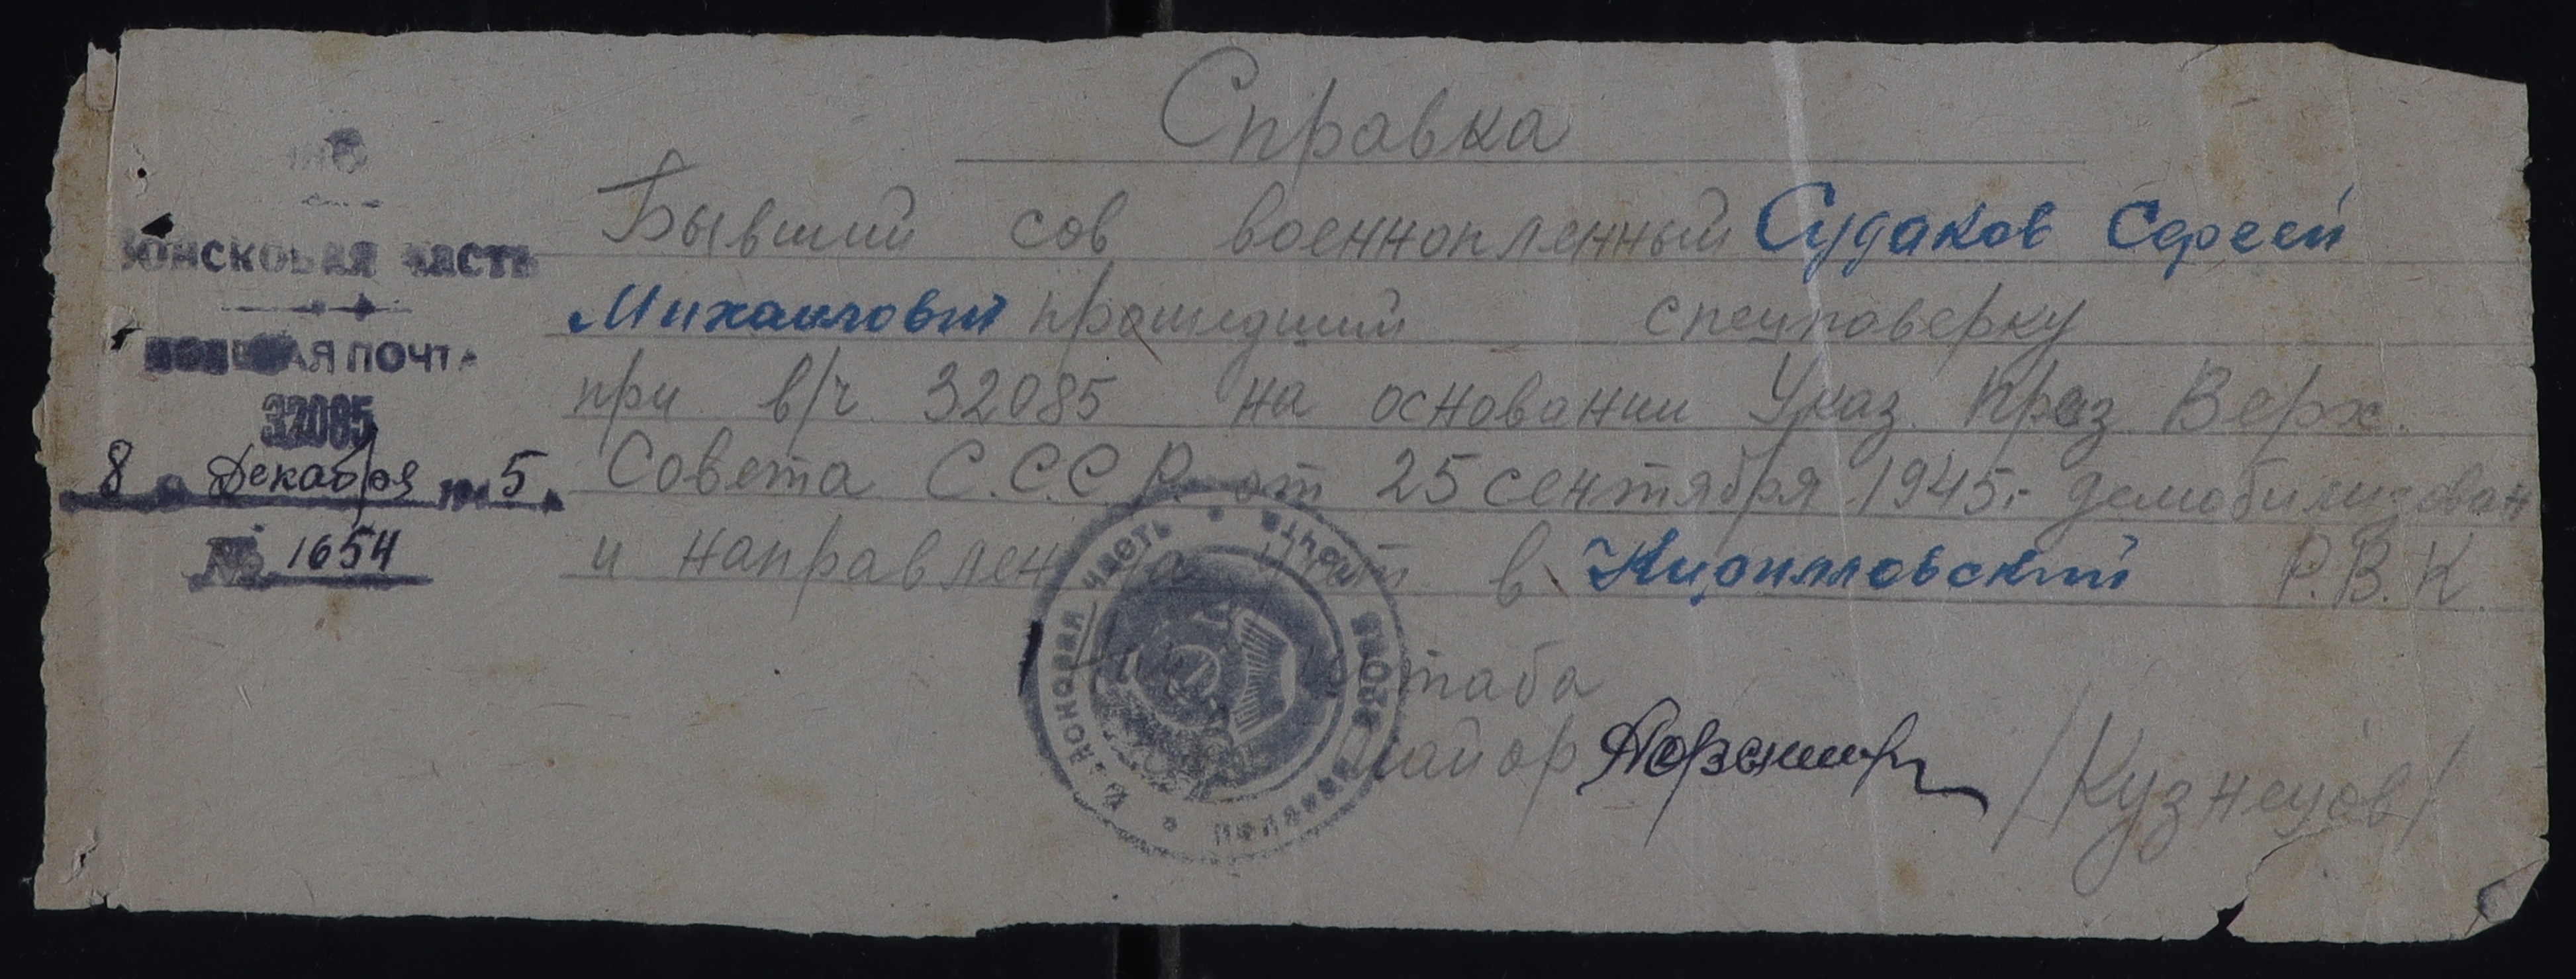 Справка
ВОЙСКОВАЯ ЧАСТЬ
ПОЛЕВАЯ ПОЧТА
32085
8 Декабря 1945
№ 1654
Бывший сов военнопленный Судаков Сергей
Михайлович прошедший спецповерку
при в/ч 32085 на основании Указ. През Верх.
Совета С.С.С.Р. от 25 сентября 1945г. демобилизован
и направлен на учет в Кирилловский Р.В.К.
Нач штаба
майор /Кузнецов/
ВОЙСКОВАЯ ЧАСТЬ • ПОЛЕВАЯ ПОЧТА 32085